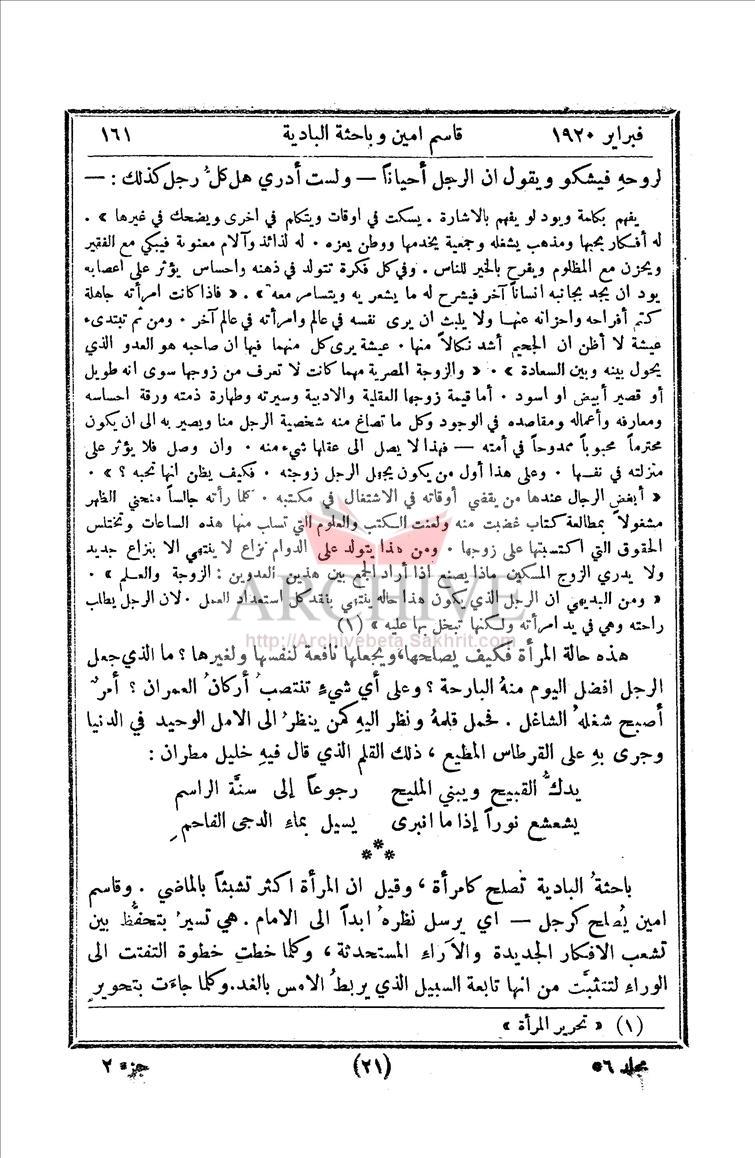 فبراير ١٩٢٠ قاسم امين وباحثة البادية ١٦١
لروحهِ فيشكو ويقول ان الرجل أحياناً — ولست أدري هل كلُّ رجل كذلك : —
يفهم بكلمة ويود لو يفهم بالاشارة . يسكت في اوقات ويتكلم في اخرى ويضحك في غيرها » .
له أفكار يحبها ومذهب يشغله وجمعية يخدمها ووطن يعزه . له لذائذ وآلام معنوية فيبكي مع الفقير
ويحزن مع المظلوم ويفرح بالخير للناس . وفي كل فكرة تتولد في ذهنه واحساس يؤثر على اعصابه
يود ان يجد بجانبه انساناً آخر فيشرح له ما يشعر به ويتسامر معه » . « فاذا كانت امرأته جاهلة
كتم أفراحه واحزانه عنها ولا يلبث ان يرى نفسه في عالم وامرأته في عالم آخر . ومن ثم تبتدىء
عيشة لا أظن ان الجحيم أشد نكالاً منها . عيشة يرى كل منهما فيها ان صاحبه هو العدو الذي
يحول بينه وبين السعادة » . « والزوجة المصرية مهما كانت لا تعرف من زوجها سوى انه طويل
أو قصير أبيض او اسود . أما قيمة زوجها العقلية والادبية وسيرته وطهارة ذمته ورقة احساسه
ومعارفه وأعماله ومقاصده في الوجود وكل ما تصاغ منه شخصية الرجل منا ويصير به الى ان يكون
محترماً محبوباً ممدوحاً في أمته — فهذا لا يصل الى عقلها شيء منه . وان وصل فلا يؤثر على
منزلته في نفسها . وعلى هذا أول من يكون يجهل الرجل زوجته . فكيف يظن انها تحبه ؟ » .
« أبغض الرجال عندها من يقضي أوقاته في الاشتغال في مكتبه . كلما رأته جالساً منحني الظهر
مشغولاً بمطالعة كتاب غضبت منه ولعنت الكتب والعلوم التي تسلب منها هذه الساعات وتختلس
الحقوق التي اكتسبتها على زوجها . ومن هذا يتولد على الدوام نزاع لا ينتهي الا بنزاع جديد
ولا يدري الزوج المسكين ماذا يصنع اذا أراد الجمع بين هذين العدوين : الزوجة والعلم » .
« ومن البديهي ان الرجل الذي يكون هذا حاله ينتهي بفقد كل استعداد العمل . لان الرجل يطلب
راحته وهي في يد امرأته ولكنها تبخل بها عليه » (١)
ARCHIVE
http://Archivebeta.Sakhrit.com
هذه حالة المرأة فكيف يصلحها، ويجعلها نافعة لنفسها ولغيرها ؟ ما الذي جعل
الرجل افضل اليوم منهُ البارحة ؟ وعلى أي شيءٍ تنتصبُ أركانُ العمران ؟ أمرٌ
أصبح شغلهُ الشاغل . فحمل قلمهُ ونظر اليهِ كمن ينظرُ الى الامل الوحيد في الدنيا
وجرى بهِ على القرطاس المطيع ، ذلك القلم الذي قال فيهِ خليل مطران :
يدكُّ القبيح ويبني المليح رجوعاً إلى سنَّة الراسم
يشعشع نوراً إذا ما انبرى يسيل بماءِ الدجى الفاحمِ
***
باحثةُ البادية تصلح كامرأة ، وقيل ان المرأة اكثر تشبثاً بالماضي . وقاسم
امين يُصلح كرجل — اي يرسل نظرهُ ابداً الى الامام . هي تسيرُ بتحفُّظ بين
تشعب الافكار الجديدة والآراءِ المستحدثة ، وكلما خطت خطوة التفتت الى
الوراءِ لتتثبَّت من انها تابعة السبيل الذي يربطُ الامس بالغد. وكلما جاءَت بتحوير
(١) « تحرير المرأة »
مجلد ٥٦ (٢١) جزء ٢